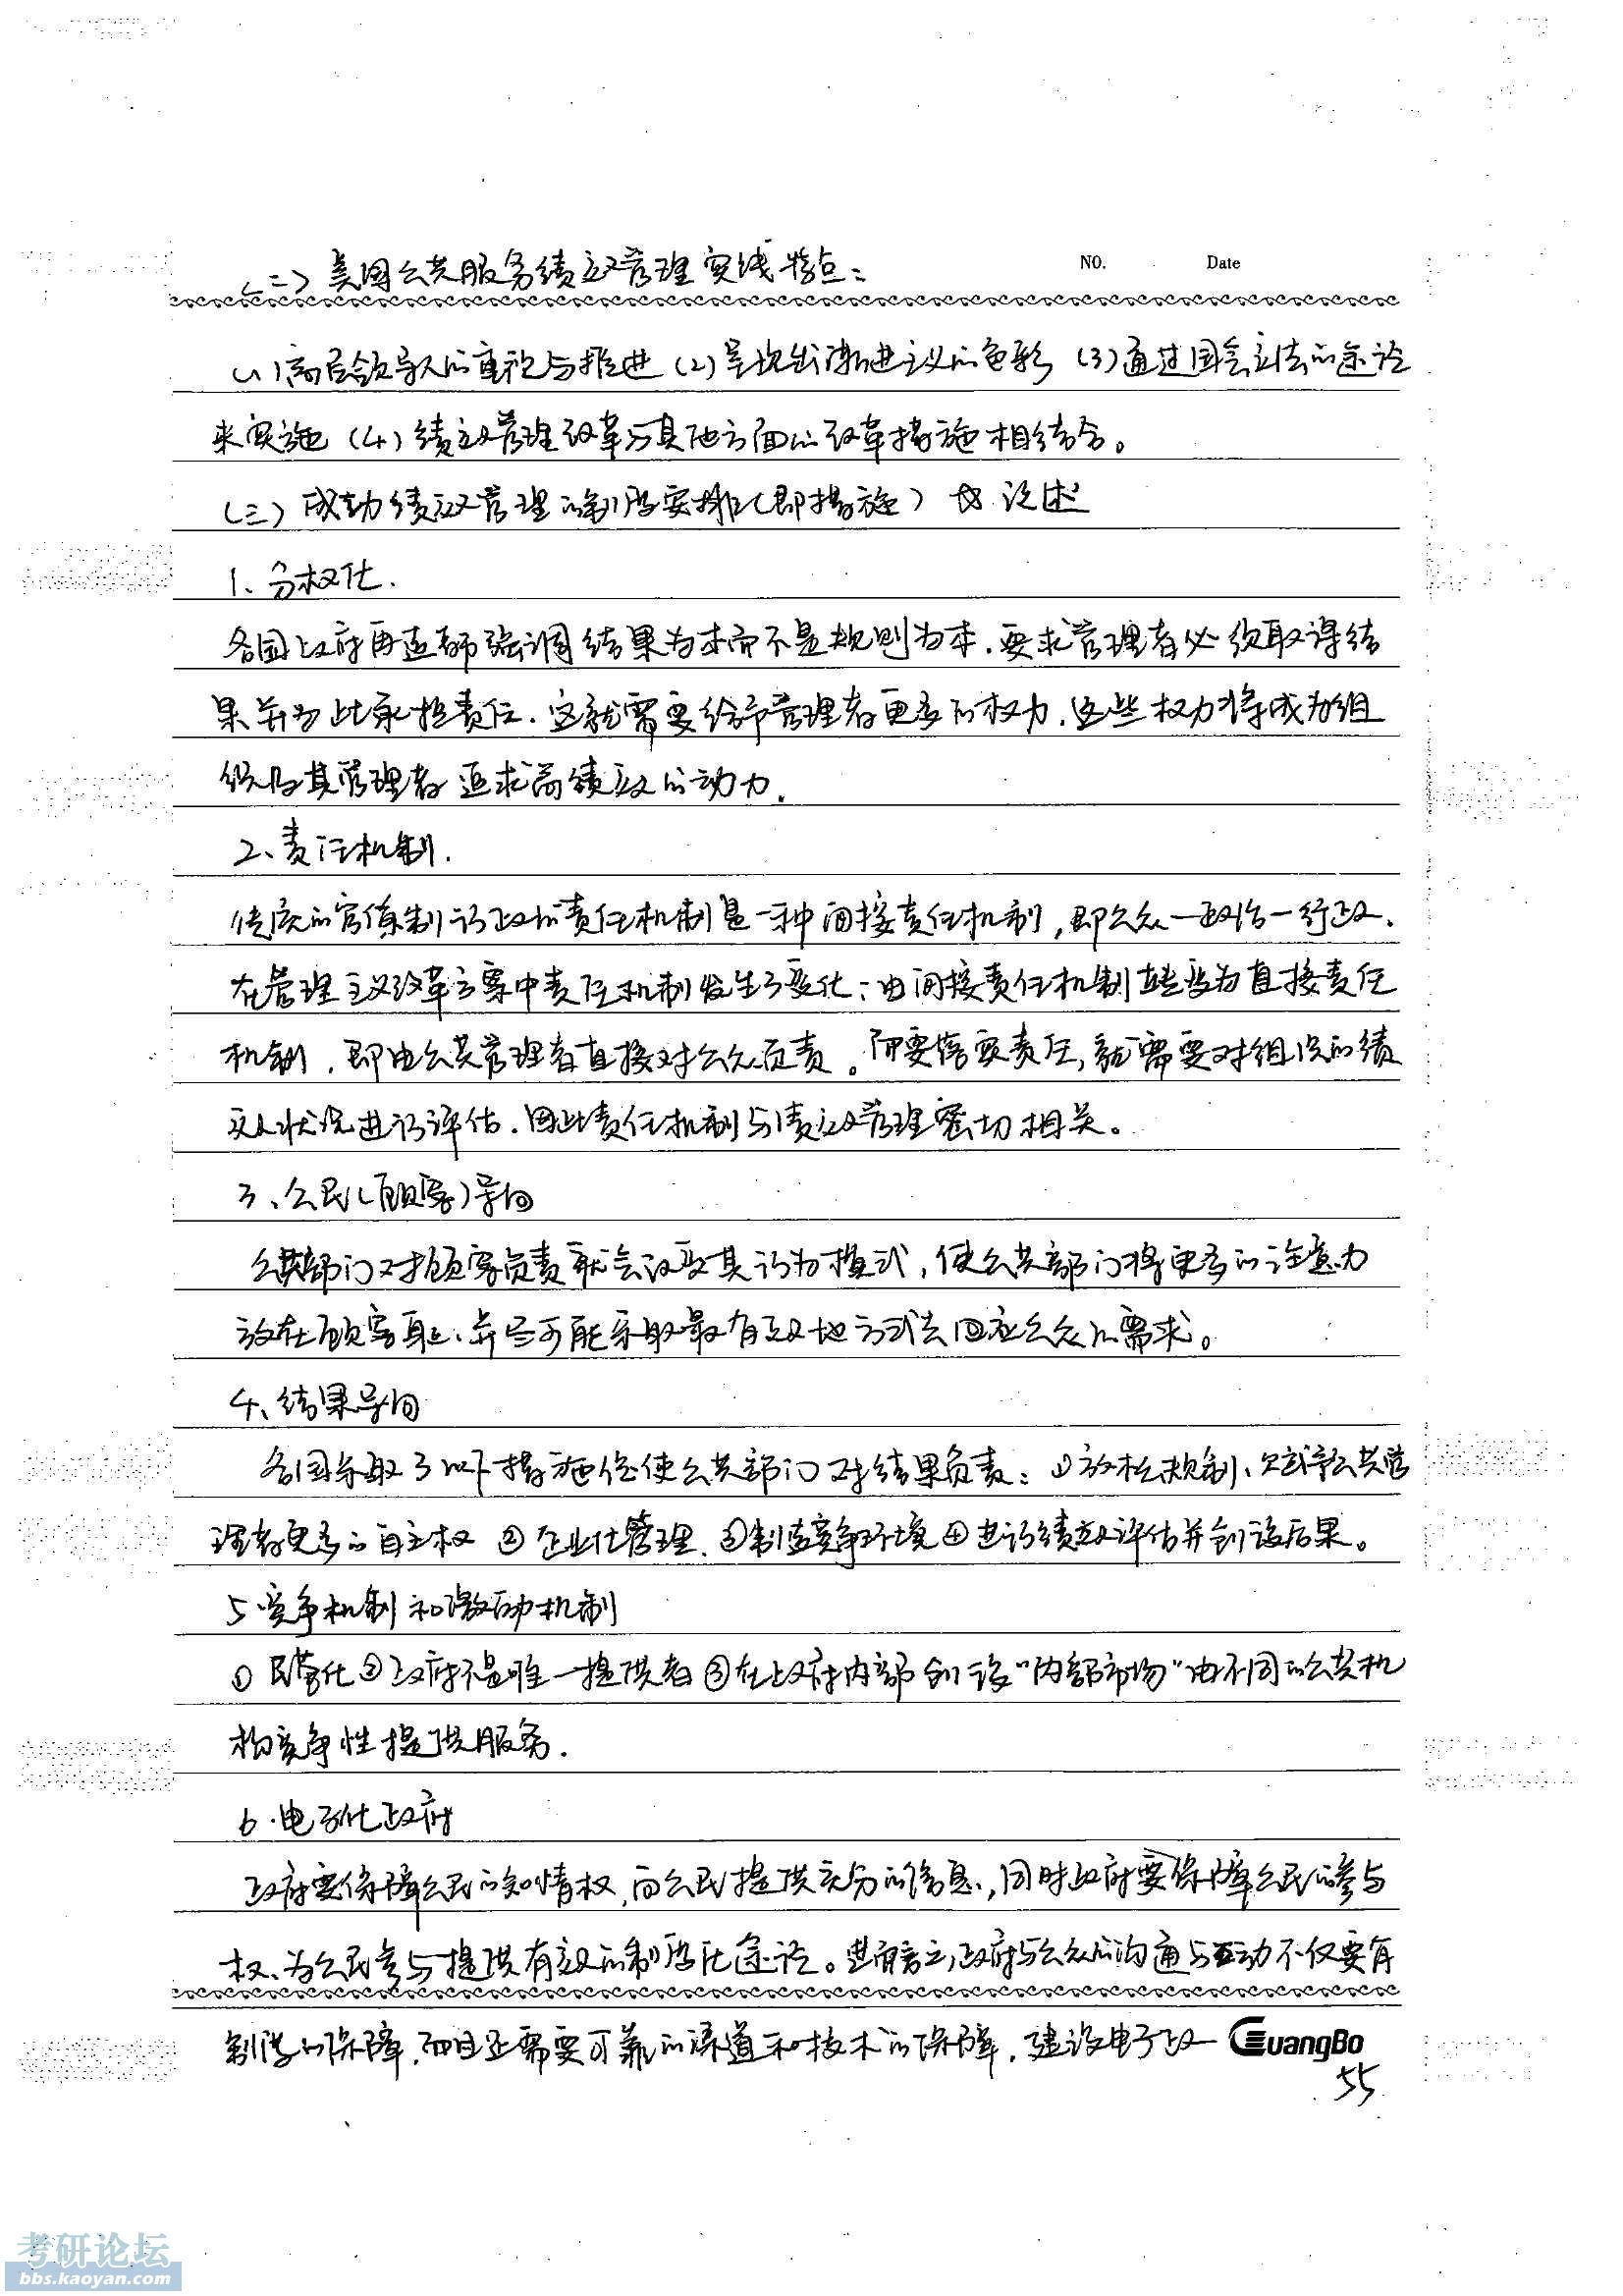 (二)美国公共服务绩效管理实践特点:
NO. Date
(1)高层领导人的重视与推进 (2)呈现出渐进主义的色彩 (3)通过国会立法的途径
来实施 (4)绩效管理改革与其他方面的改革措施相结合。
(三)成功绩效管理的制度安排(即措施) 论述
1、分权化.
各国政府再造都强调结果为本而不是规则为本.要求管理者必须取得结
果并为此承担责任.这就需要给予管理者更多的权力.这些权力将成为组
织及其管理者追求高绩效的动力.
2、责任机制.
传统的官僚制行政的责任机制是一种间接责任机制,即公众—政治—行政.
在管理主义改革方案中责任机制发生了变化:由间接责任机制转变为直接责任
机制.即由公共管理者直接对公众负责。而要落实责任,就需要对组织的绩
效状况进行评估.因此责任机制与绩效管理密切相关。
3、公民(顾客)导向
公共部门对顾客负责就会改变其行为模式,使公共部门将更多的注意力
放在顾客身上、并尽可能采取最有效地方式去回应公众的需求。
4、结果导向
各国采取了以下措施促使公共部门对结果负责:①放松规制、赋予公共管
理者更多的自主权 ②企业化管理.③制造竞争环境④进行绩效评估并创设后果。
5.竞争机制和激励机制
①民营化②政府不是唯一提供者③在政府内部创设“内部市场”由不同的公共机
构竞争性提供服务.
6.电子化政府
政府要保障公民的知情权,向公民提供充分的信息,同时政府要保障公民的参与
权、为公民参与提供有效的制度化途径。进而言之,政府与公众的沟通与互动不仅要有
制度的保障,而且还需要可靠的渠道和技术的保障.建设电子政
GuangBo
55
考研论坛
bbs.kaoyan.com